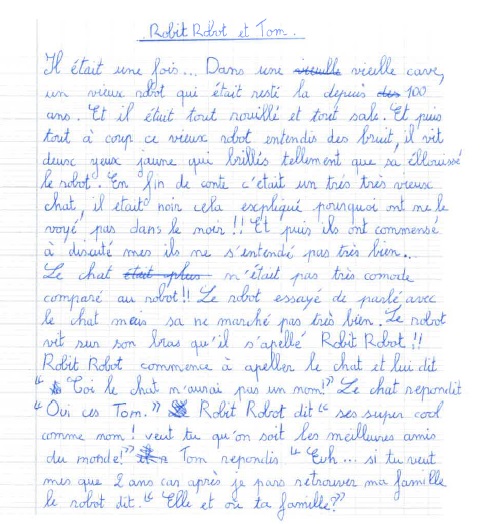 Robit Robot et Tom.
Il était une fois... Dans une vieille cave,
un vieux robot qui était resté la depuis 100
ans. Et il était tout rouillé et tout sale. Et puis
tout à coup ce vieux robot entendis des bruit, il vit
deux yeux jaune qui brillés tellement que sa éblouissé
le robot. En fin de conte c'était un très très vieux
chat, il était noir cela expliqué pourquoi ont ne le
voyé pas dans le noir !! Et puis ils ont commensé
à discuté mes ils ne s'entendé pas très bien...
Le chat était plus n'était pas très comode
comparé au robot !! Le robot essayé de parlé avec
le chat mais sa ne marché pas très bien. Le robot
vit sur son bras qu'il s'apellé Robit Robot !!
Robit Robot commence à apeller le chat et lui dit
" Toi le chat n'aurai pas un nom!" Le chat repondit
" Oui ces Tom." Robit Robot dit " ses super cool
comme nom ! veut tu qu'on soit les meilleures amis
du monde!" Tom repondis " Euh... si tu veut
mes que 2 ans car après je pars retrouver ma famille
le robot dit. " Elle et où ta famille?"